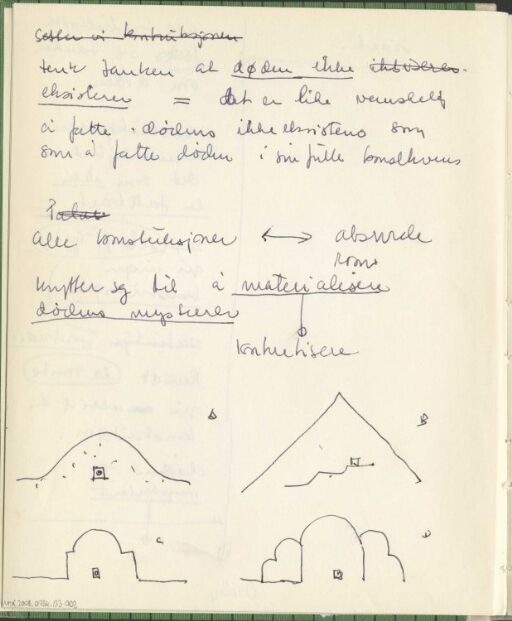 Setter vi konstruksjonen
tenk tanken at døden ikke eksisterer
eksisterer = det er like vanskelig
å fatte dødens ikke eksistens som
som å fatte døden i sin fulle konsekvens
alle konstruksjoner ⟷ absurde
rom
knytter sg til å materialisere
dødens mysterier
konkretisere
A
B
C
D